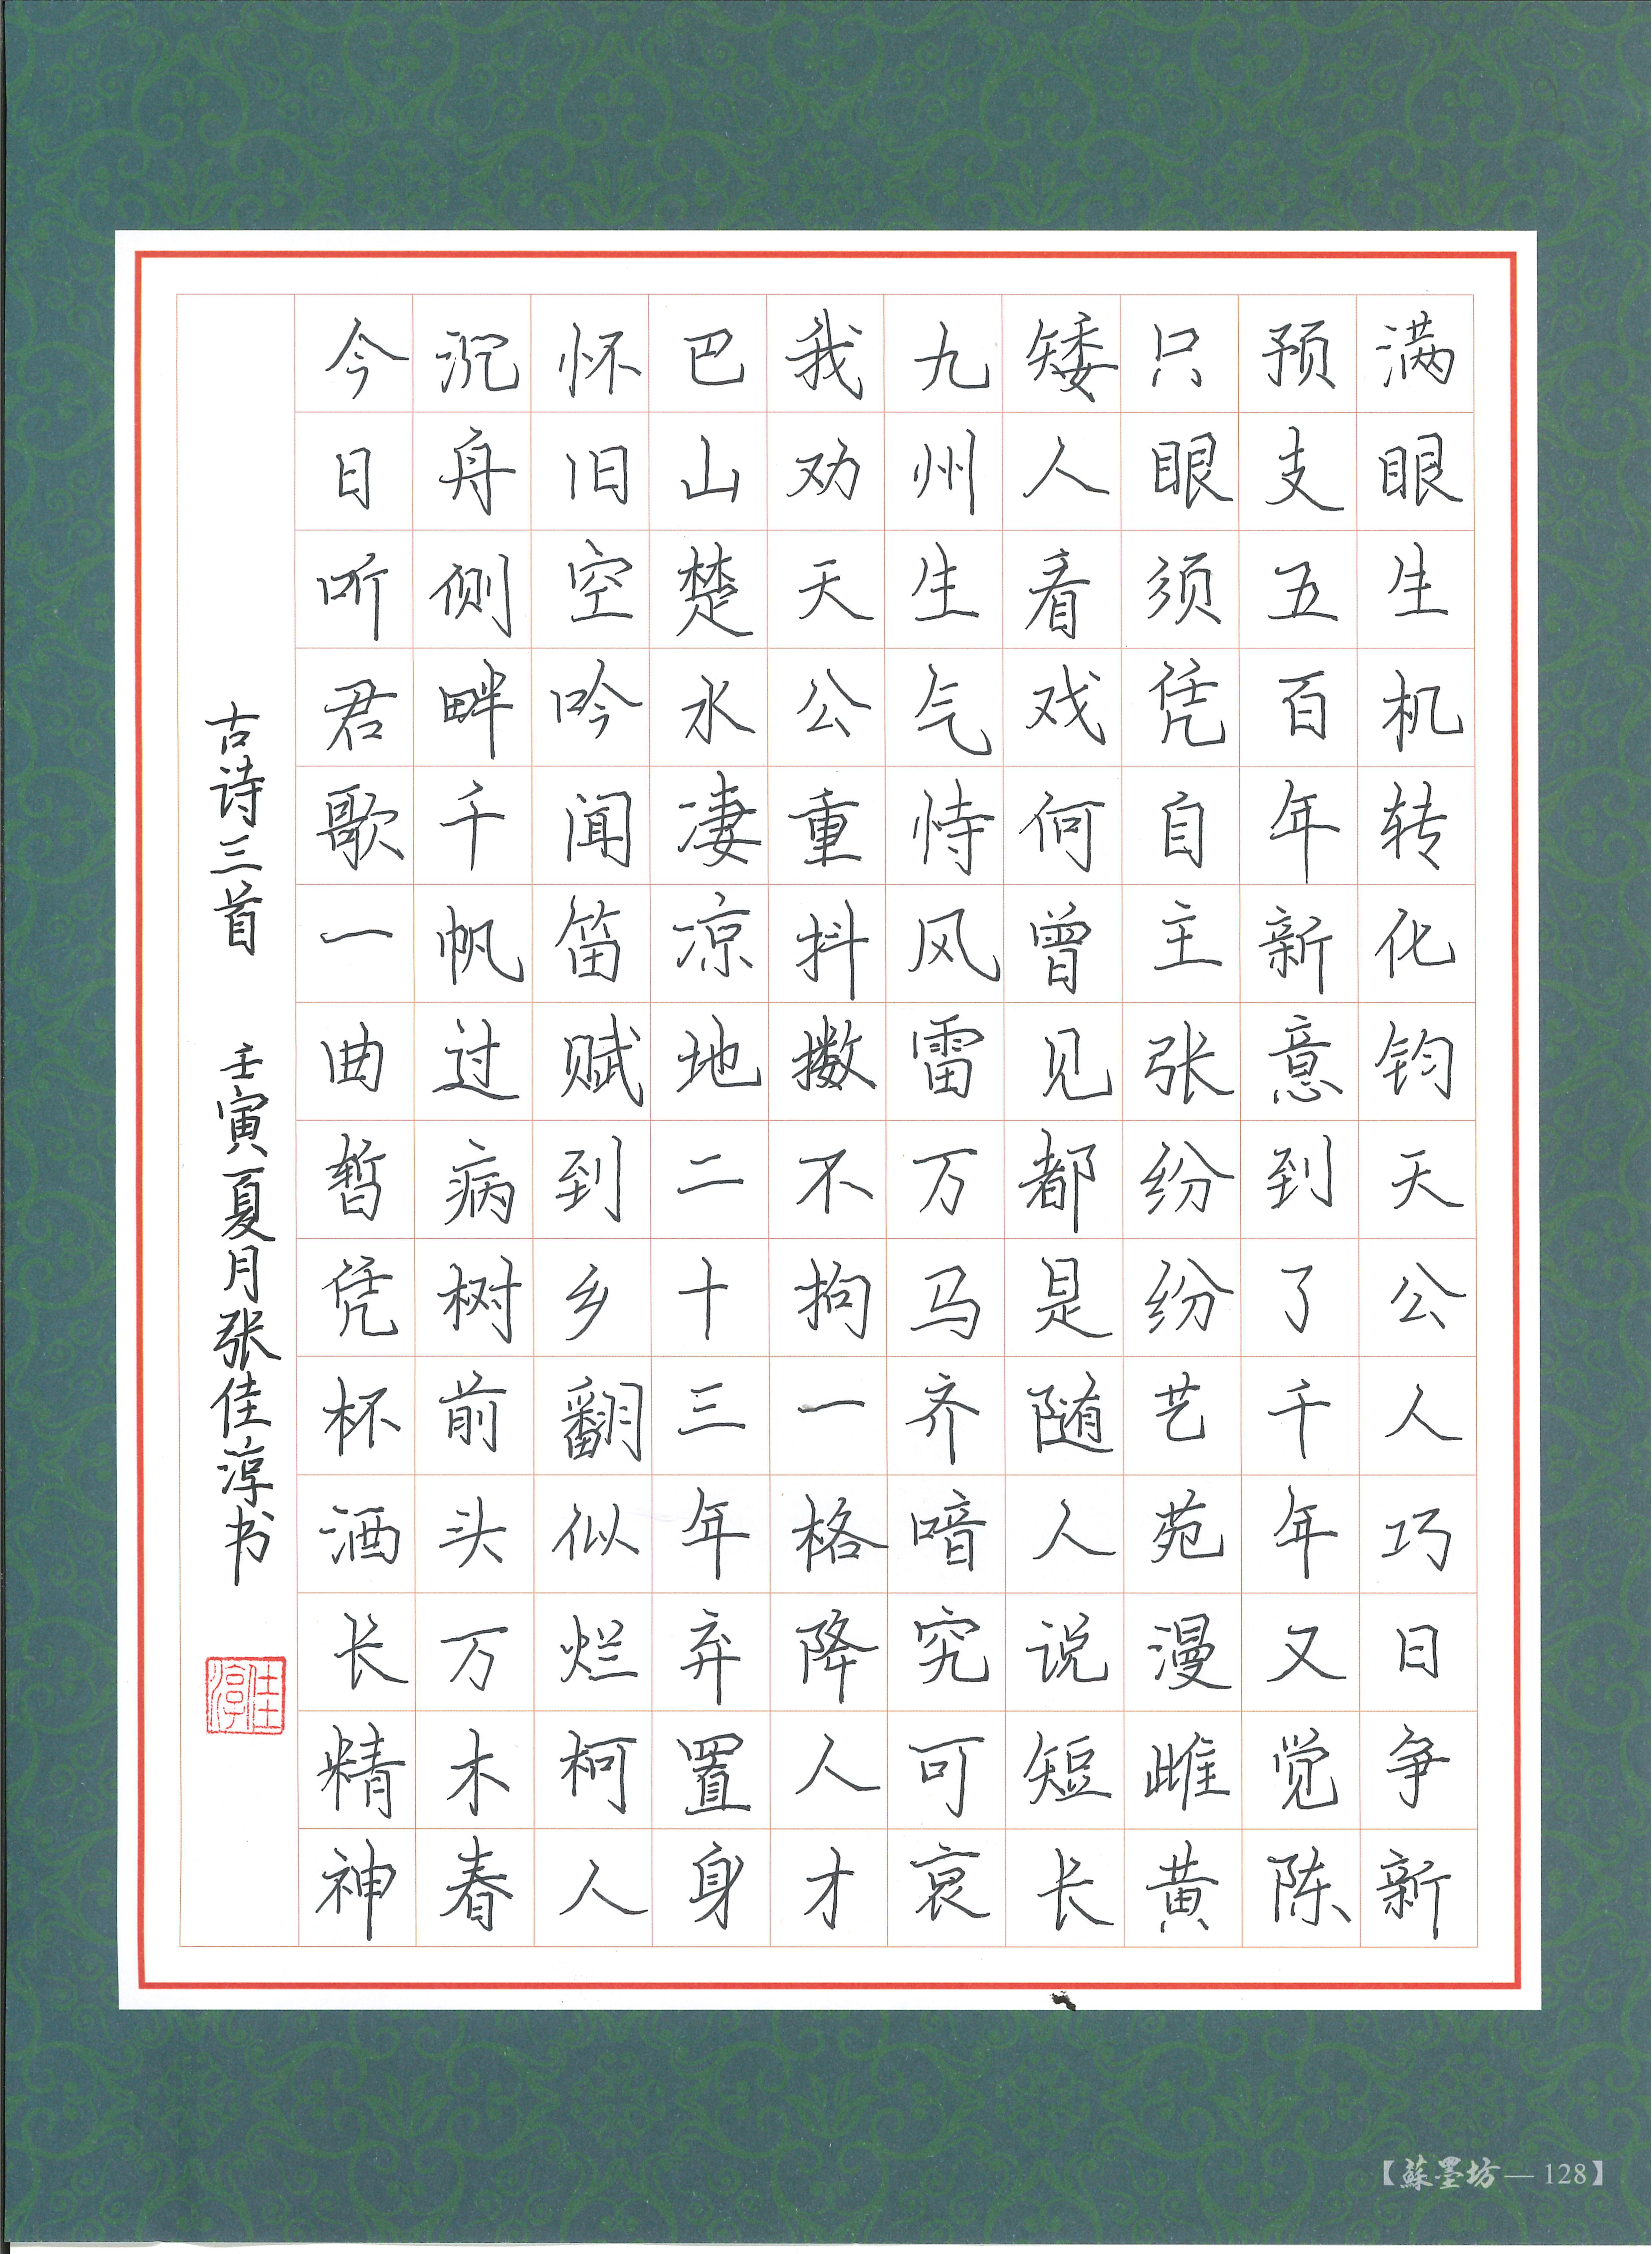 满眼生机转化钧天公人巧日争新
预支五百年新意到了千年又觉陈
只眼须凭自主张纷纷艺苑漫雌黄
矮人看戏何曾见都是随人说短长
九州生气恃风雷万马齐喑究可哀
我劝天公重抖擞不拘一格降人才
巴山楚水凄凉地二十三年弃置身
怀旧空吟闻笛赋到乡翻似烂柯人
沉舟侧畔千帆过病树前头万木春
今日听君歌一曲暂凭杯酒长精神
古诗三首 壬寅夏月张佳淳书
佳淳
【蘇墨坊—128】